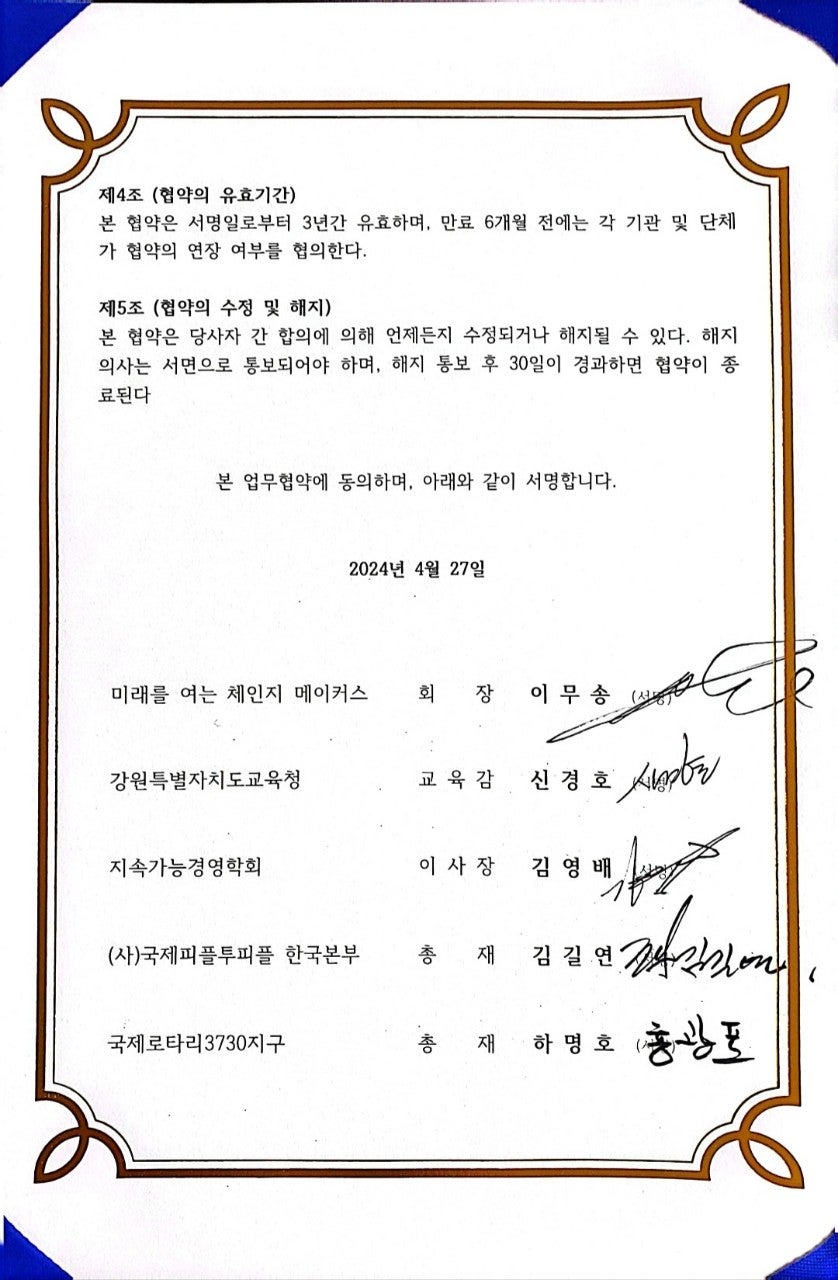 제4조 (협약의 유효기간)
본 협약은 서명일로부터 3년간 유효하며, 만료 6개월 전에는 각 기관 및 단체
가 협약의 연장 여부를 협의한다.
제5조 (협약의 수정 및 해지)
본 협약은 당사자 간 합의에 의해 언제든지 수정되거나 해지될 수 있다. 해지
의사는 서면으로 통보되어야 하며, 해지 통보 후 30일이 경과하면 협약이 종
료된다
본 업무협약에 동의하며, 아래와 같이 서명합니다.
2024년 4월 27일
미래를 여는 체인지 메이커스 회 장 이 무 송 (서명)
강원특별자치도교육청 교 육 감 신 경 호 (서명)
지속가능경영학회 이 사 장 김 영 배 (서명)
(사)국제피플투피플 한국본부 총 재 김 길 연 김길연
국제로타리3730지구 총 재 하 명 호 홍광표